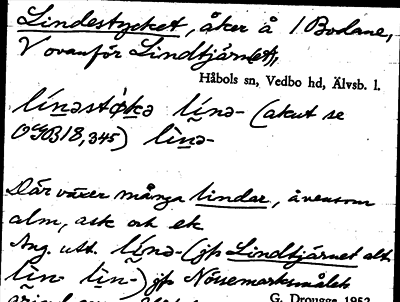 Lindestycket, åker å 1 Bodane,
V ovanför Lindtjärnet,
Håbols sn, Vedbo hd, Älvsb. l.
lí̄nəstỳkə lí̄nə- (akut se
OGB 18,345) lì̄nə-
Där växer många lindar, ävensom
alm, ask och ek
Ang. utt. lí̄nə- (jfr Lindtjärnet alt.
lì̄n- lì̄n-) jfr Nössemarksmålets
G. Drougge 1952